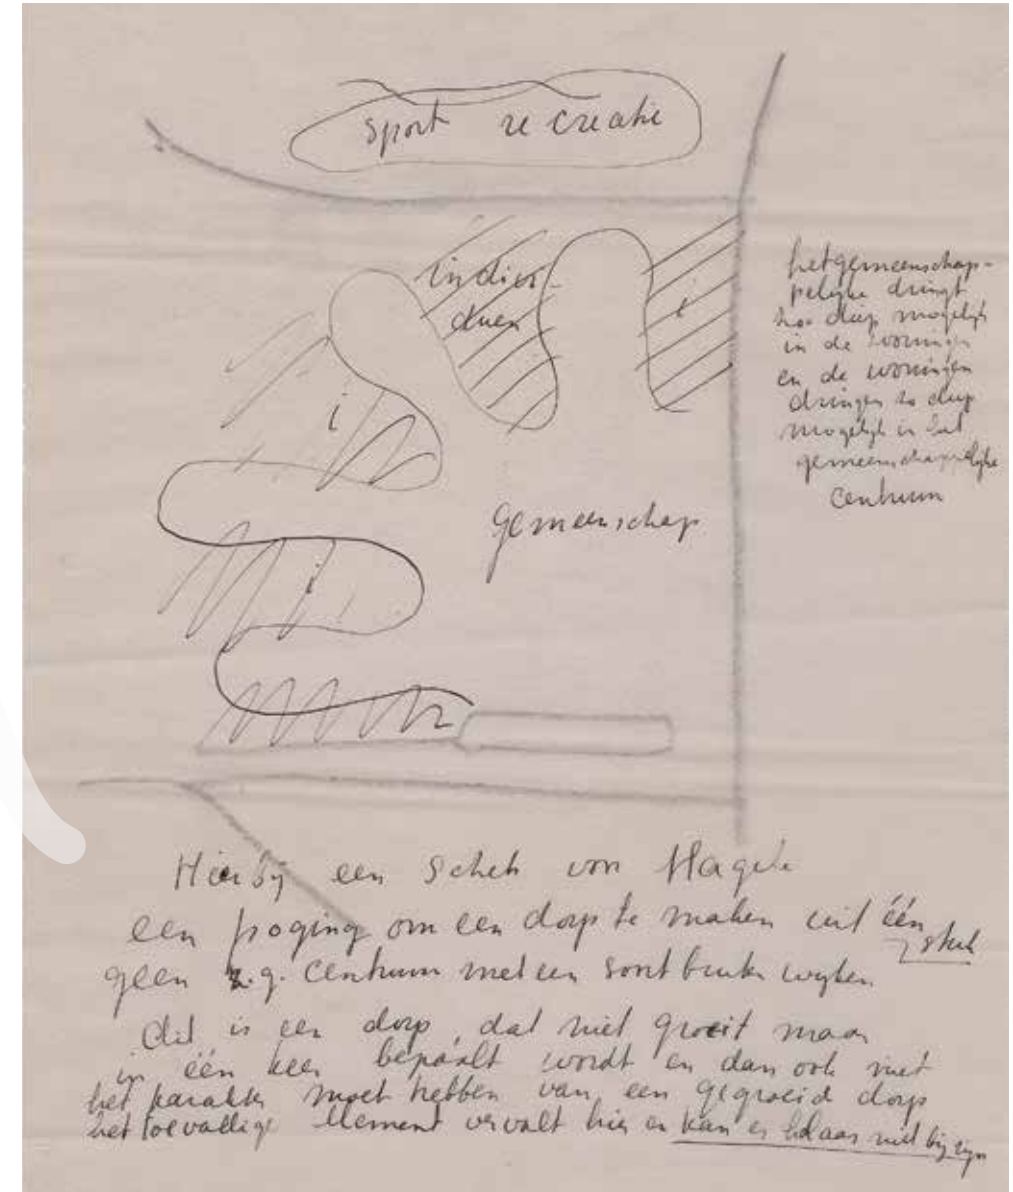 sport recreatie
indivi-
duen
i
i
i
gemeenschap
het gemeenschap-
pelijke dringt
zo diep mogelijk
in de woningen
en de woningen
dringen zo diep
mogelijk in het
gemeenschappelijke
centrum
Hierbij een schets von Nagele
een poging om een dorp te maken uit één
stuk
geen z.g. centrum met een soort buiten wijken
dit is een dorp, dat niet groeit maar
in één keer bepaalt wordt en dan ook niet
het karakter moet hebben van een gegroeid dorp
het toevallige element vervalt hier en kan er helaas niet bij zijn